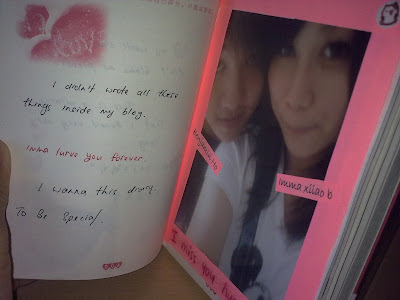 Love
I didn't wrote all these
things inside my blog.
Imma lurve you forever.
I wanna this diary
To Be Special.
Imma xiiao b
I miss you